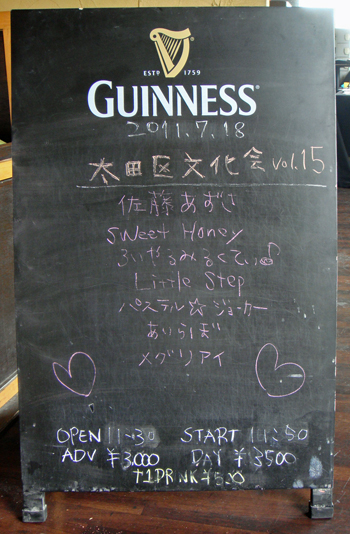 ESTD 1759
GUINNESS
2011.7.18
太田区文化会 vol.15
佐藤あずさ
Sweet Honey
ろいやるみるくてぃ
Little Step
パステル☆ジョーカー
ありらぼ
メグリアイ
OPEN 11:30 START 11:50
ADV ¥3,000 DAY ¥3500
+1DRINK ¥500